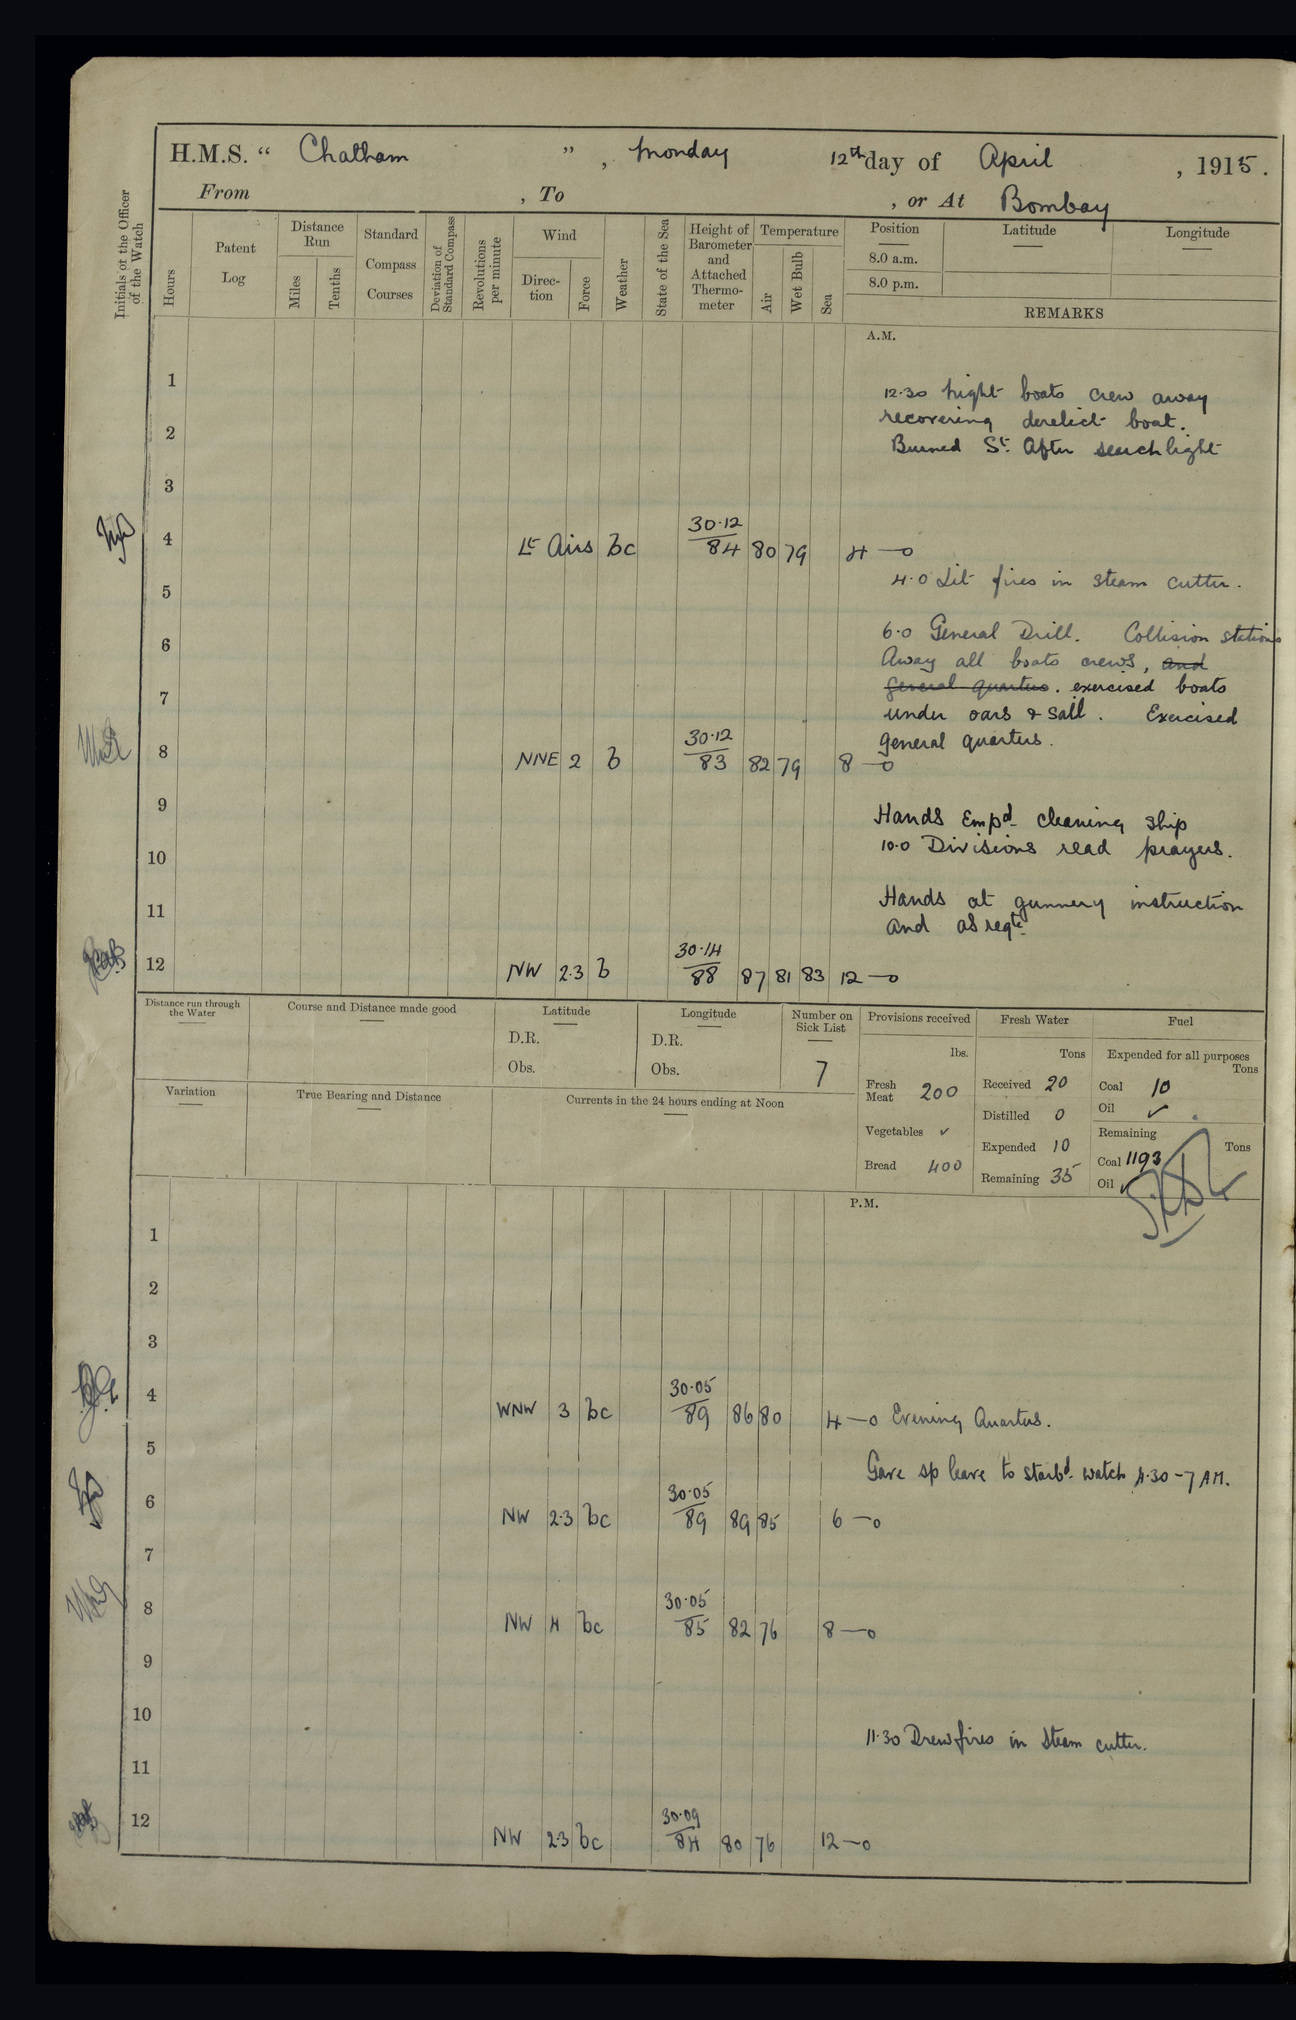 H.M.S. “ Chatham ” , Monday 12th day of April , 1915.
From , To , or At Bombay
Initials of the Officer of the Watch
Hours
Patent Log
Distance Run
Miles
Tenths
Standard Compass Courses
Deviation of Standard Compass
Revolutions per minute
Wind
Direc-tion
Force
Weather
State of the Sea
Height of Barometer and Attached Thermo-meter
Temperature
Air
Wet Bulb
Sea
Position
8.0 a.m.
8.0 p.m.
Latitude
Longitude
REMARKS
A.M.
1
12.30 Night boats crew away
2 recovering derelict boat.
Burned St. After searchlight
3
4 Lt Airs bc 30.12 84 80 79 4 —o
4.0 Lit fires in steam cutter.
5
6 6.0 General Drill. Collision stations
Away all boats crews, and
7 general quarters. exercised boats
under oars & sail. Exercised
general quarters.
8 NNE 2 b 30.12 83 82 79 8 —o
9
Hands Empd cleaning ship
10 10.0 Divisions read prayers.
11 Hands at gunnery instruction
and as reqte.
12 NW 2.3 b 30.14 88 87 81 83 12 —o
Distance run through the Water
Course and Distance made good
Latitude
D.R.
Obs.
Longitude
D.R.
Obs.
Number on Sick List
7
Provisions received
lbs.
Fresh Meat 200
Vegetables ✓
Bread 400
Fresh Water
Tons
Received 20
Distilled 0
Expended 10
Remaining 35
Fuel
Expended for all purposes
Tons
Coal 10
Oil ✓
Remaining
Tons
Coal 1193
Oil ✓
Variation
True Bearing and Distance
Currents in the 24 hours ending at Noon
P.M.
1
2
3
4 WNW 3 bc 30.05 89 86 80 4 —o Evening Quarters.
5 Gave sp leave to starbd. watch 4.30 - 7 AM.
6 NW 2.3 bc 30.05 89 89 85 6 —o
7
8 NW 4 bc 30.05 85 82 76 8 —o
9
10
11.30 Drew fires in Steam cutter.
11
12 NW 2.3 bc 30.09 84 80 76 12 —o